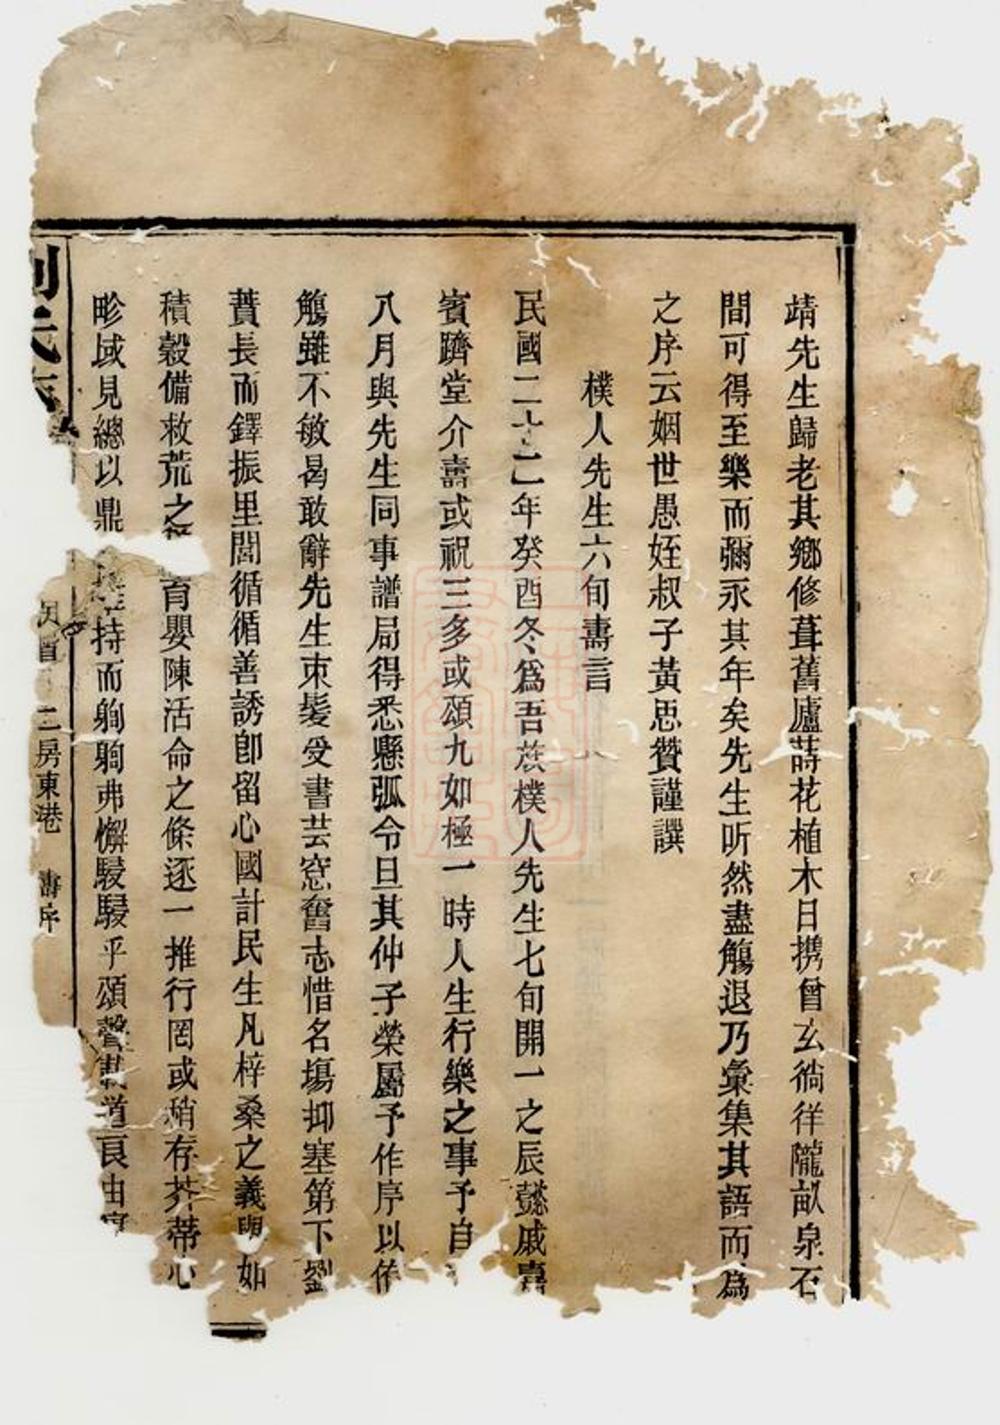 靖先生歸老其鄉修葺舊廬蒔花植木日携曾玄徜徉隴畝泉石
間可得至樂而彌永其年矣先生听然盡觴退乃彙集其語而爲
之序云姻世愚姪叔子黃思贊謹譔
樸人先生六旬壽言
民國二十二年癸酉冬爲吾族樸人先生七旬開一之辰懿戚嘉
賓躋堂介壽或祝三多或頌九如極一時人生行樂之事予自
八月與先生同事譜局得悉懸弧令旦其仲子榮屬予作序以侑
觴雖不敏曷敢辭先生束髮受書芸窓奮志惜名塲抑塞第下劉
蕡長而鐸振里閭循循善誘卽留心國計民生凡梓桑之義舉如
積穀備救荒之 育嬰陳活命之條逐一推行罔或稍存芥蒂心
畛域見總以鼎 持而躬躬弗懈駸駸乎頌聲載道良由
劉氏
二房東港 壽序